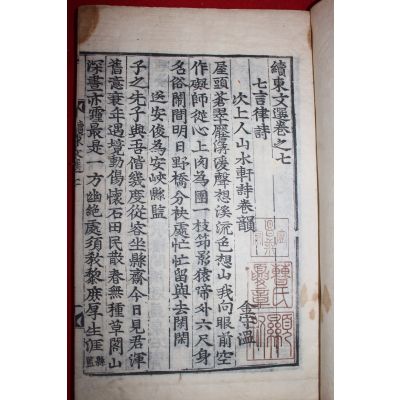 續東文選卷之七
七言律詩
次上人山水軒詩卷韻
金守溫
屋頭蒼翠聲想溪流色想山我向眼前空
作礙師從心上肉為團一枝笻影猿啼外六尺身
名俗鬧間明日野橋分袂處忙忙留與去閑閑
送安俊為安峽縣監
子之先子與吾借幾度從容坐縣齋今日見君渾
舊意衰年遇境動傷懷石田民散春無種草閣山
深晝亦霾最是一方幽絶處須敎黎庶厚生涯
縣監
續東文選七